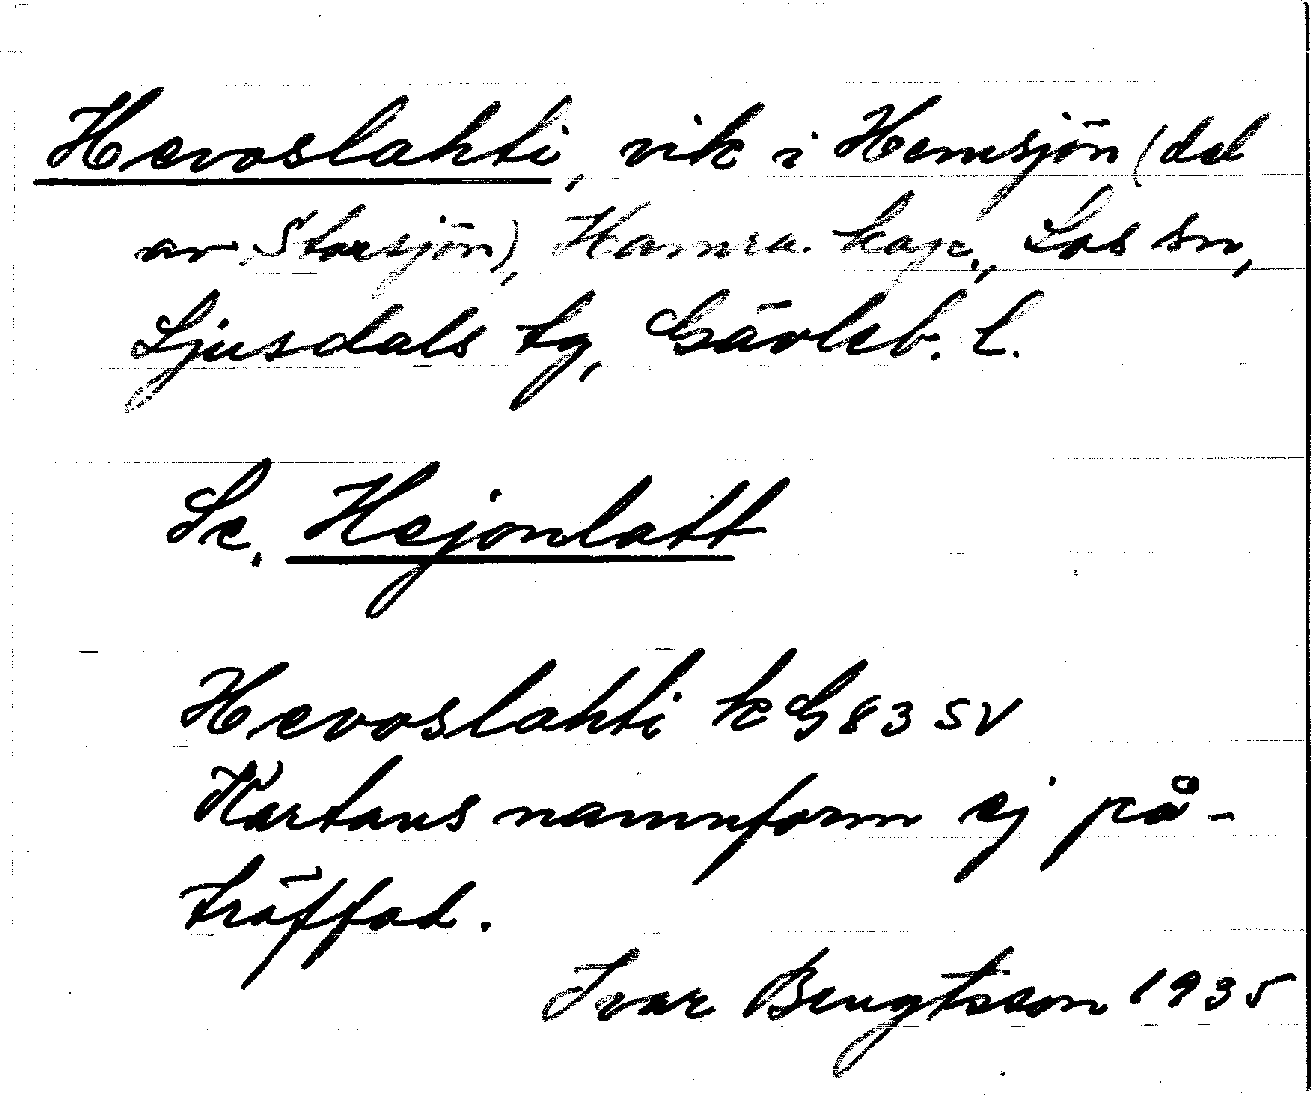 Hevoslahti, vik i Hemsjön (del
av Storsjön), Hamra kap., Los sn,
Ljusdals tg, Gävleb. l.
Se. Hejonlatt
Hevoslahti k G 83 SV
Kartans namnform ej på-
träffad.
Ivar Bengtsson 1935